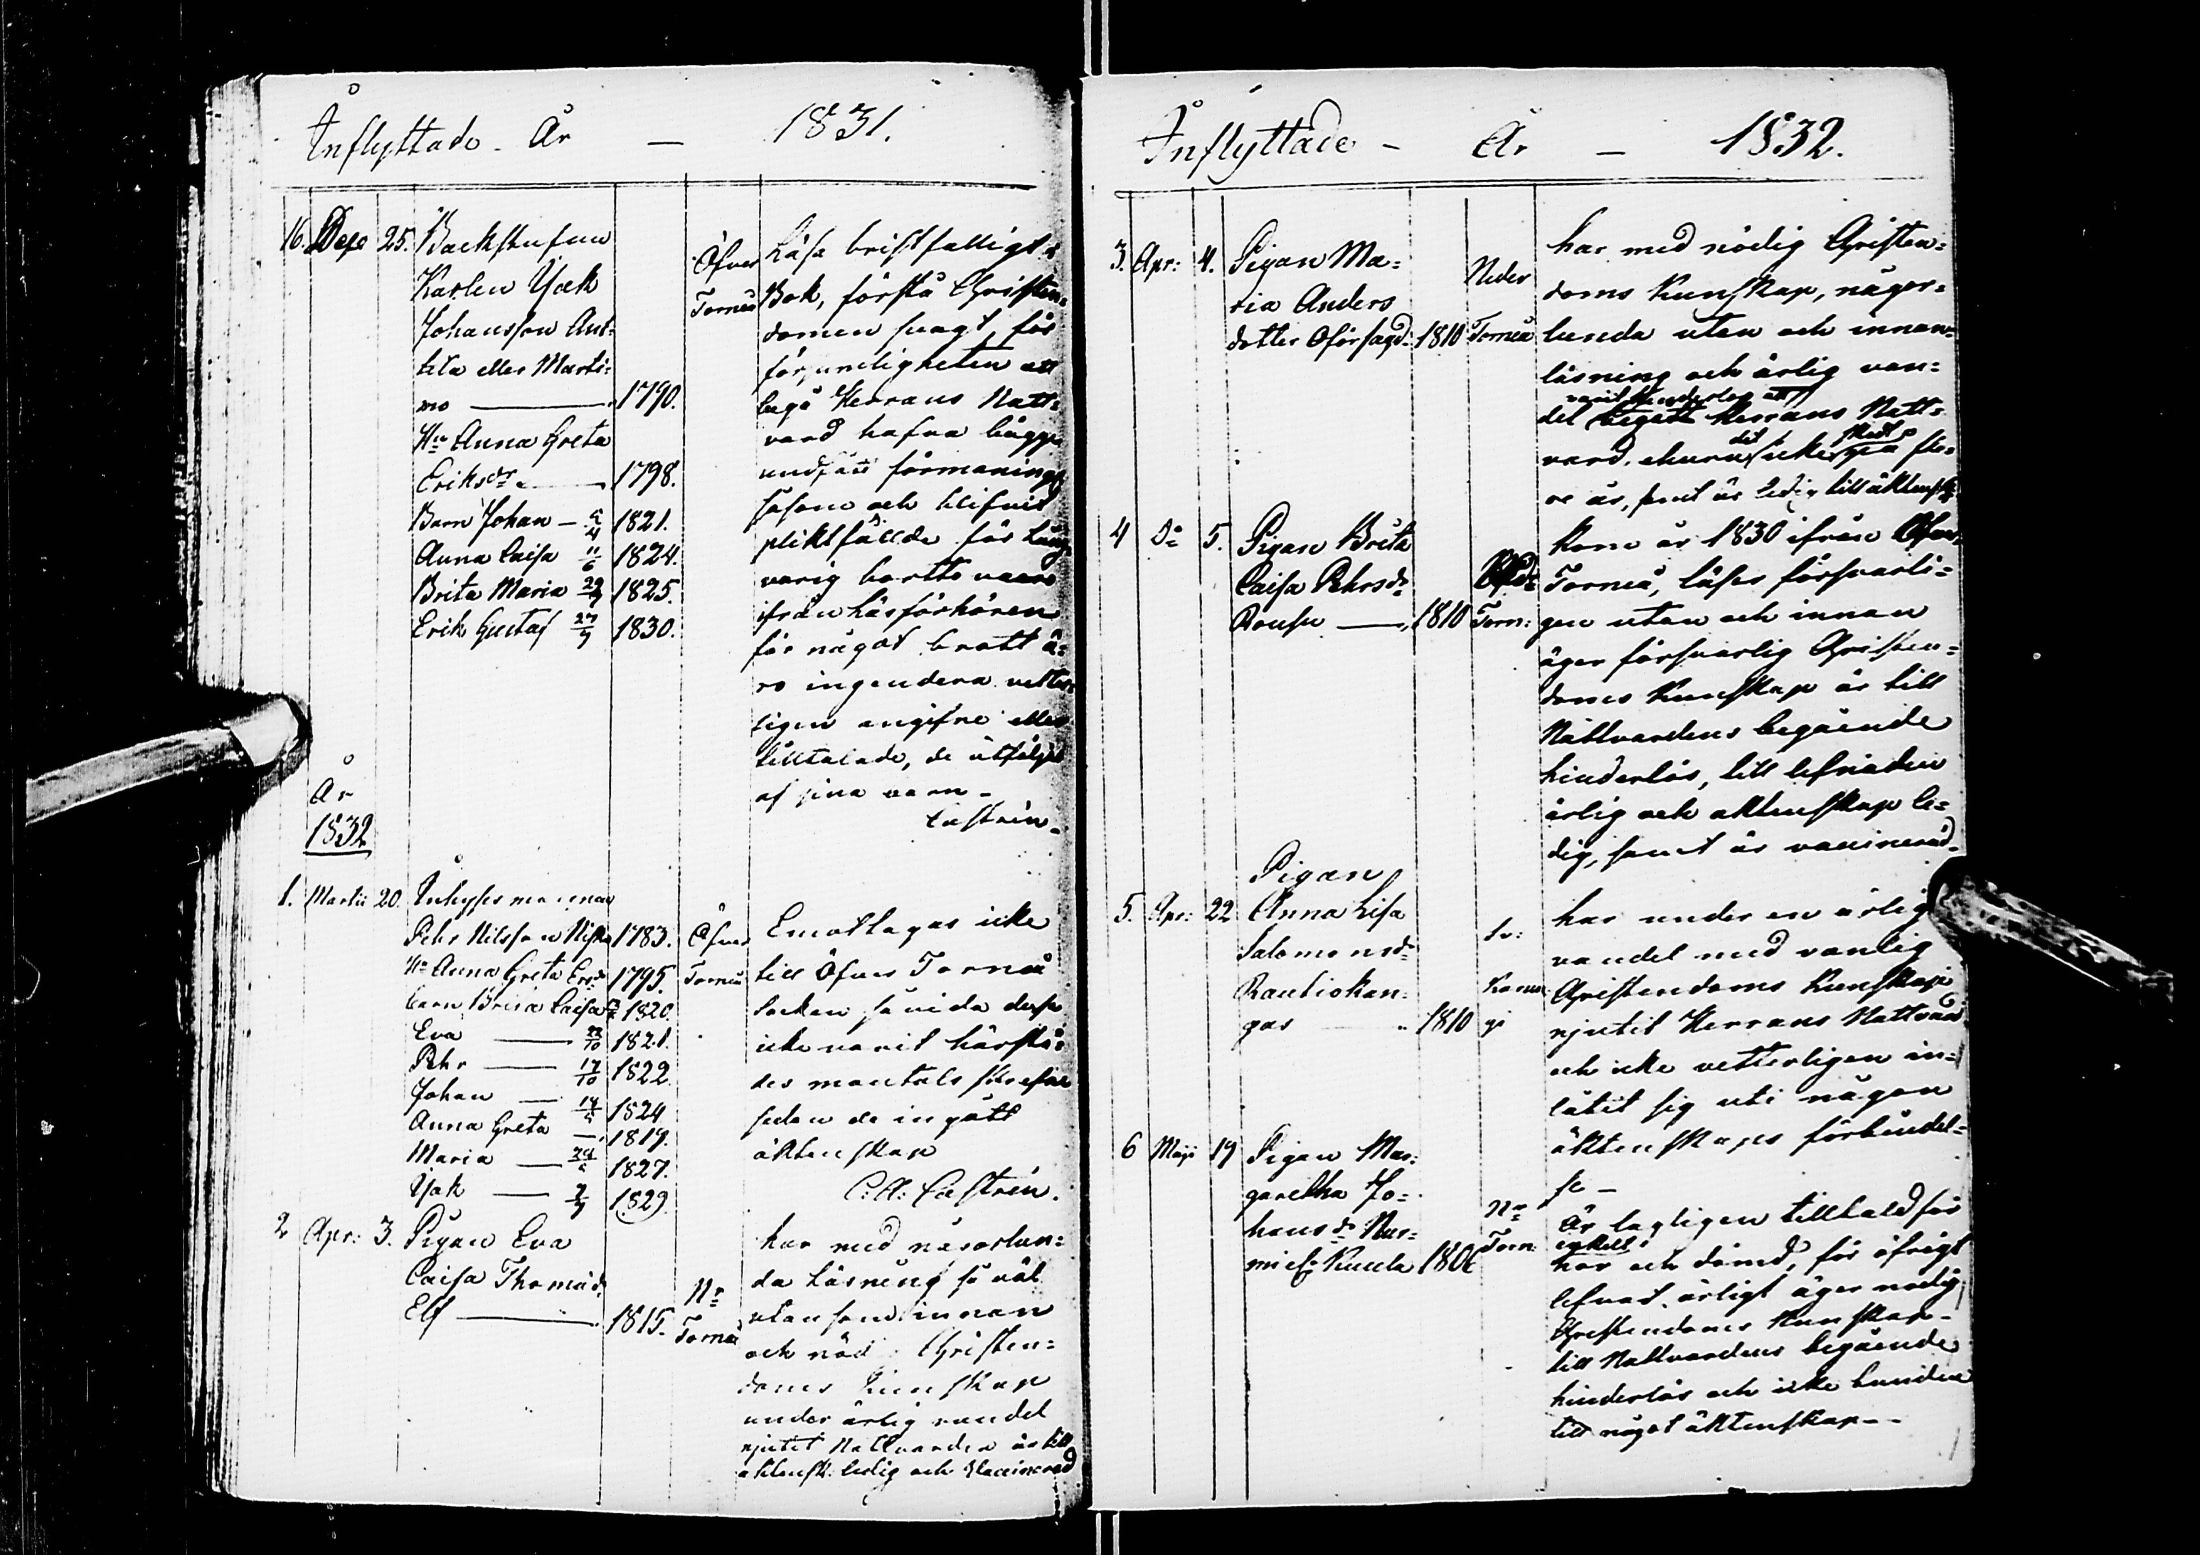 Inflyttade - År — 1831.
16. Dece 25. Backstufsu
Karlen Isak
Johansson Ant-
tila eller Marti-
mo — 1790.
Hu Anna Greta
Eriksdr — 1798.
Barn Johan — 1821.
Anna Caisa 11/6 1824.
Brita Maria 1825.
Erik Gustaf 1830.
Öfver
Torneå
Läsa bristfälligt i
Bok, förstå Christen-
domen svagt, för
försumligheten att
begå Herrans Natt-
vard hafva bägge
undfått förmaning
såsom och blifvit
pliktfällde för lång-
varig bortto varo
ifrån Läsförhören
för något brott ä-
ro ingendera vetter-
ligen angifne eller
tilltalade, de åtföljas
af sina barn -
Castrén.
År
1832
1. Martii 20. Inhysesmannen
Pehr Nilsson 1783.
Hu Anna Greta Ersd: 1795.
barn Brita Caisa 1820.
Eva — 23/10 1821.
Pehr — 17/10 1822.
Johan — 1824
Anna Greta — 1819.
Maria — 1827.
Isak — 1829.
Öfver
Torneå
Emottagas icke
till Öfver Torneå
Socken så vida desse
icke varit härstä-
des mantals skrefne
sedan de ingått
äktenskap
C. A. Castrén.
2 Apr: 3. Pigan Eva
Caisa Thomasd:
Elf — 1815.
Nr
Torneå
har med någorlun-
da Läsning så väl
utan som innan
och nöd. Christen-
doms kunskap
under ärlig vandel
njutit Nattvarden är till
äktensk: ledig och Vaccinerad
Inflyttade - År — 1832.
3. Apr: 4. Pigan Ma-
ria Anders
dotter Oförsagd: 1810
Neder
Torneå
har med nödig Christen-
doms Kunskap, någor-
lunda utan och innan-
läsning och ärlig van-
varit hinderlös att
del begått Herrans Natt-
vard, ehuru det icke skett på fle-
re år, samt är ledig till äktensk:
4 Do 5. Pigan Brita
Caisa Pehrsdr
Rousu — 1810
Torn:
Kom år 1830 ifrån Öfver
Torneå, läser försvarli-
gen utan och innan
äger försvarlig Christen-
doms Kunskap är till
Nattvardens begående
hinderlös, till lefnaden
ärlig och äktenskap le-
dig, samt är vaccinerad.
5. Apr: 22 Pigan
Anna Lisa
Salomonsdr
Rautiokan-
gas — 1810
Karun-
gi
har under en ärlig
vandel med vanlig
Christendoms Kunskap
njutit Herrans Nattvard
och icke vetterligen in-
låtit sig uti någon
äktenskaps förbindel-
se —
6 Maji 19 Pigan Mar-
garetha Jo-
hansdr Nur-
mi el: Kuula 1806
Nr
Torn:
Är lagligen tilltald för
enkelt
hor och dömd, för öfrigt
lefvat ärligt äger nödig
Christendoms Kunskap -
till Nattvardens begående
hinderlös och icke bunden
till något äktenskap - -